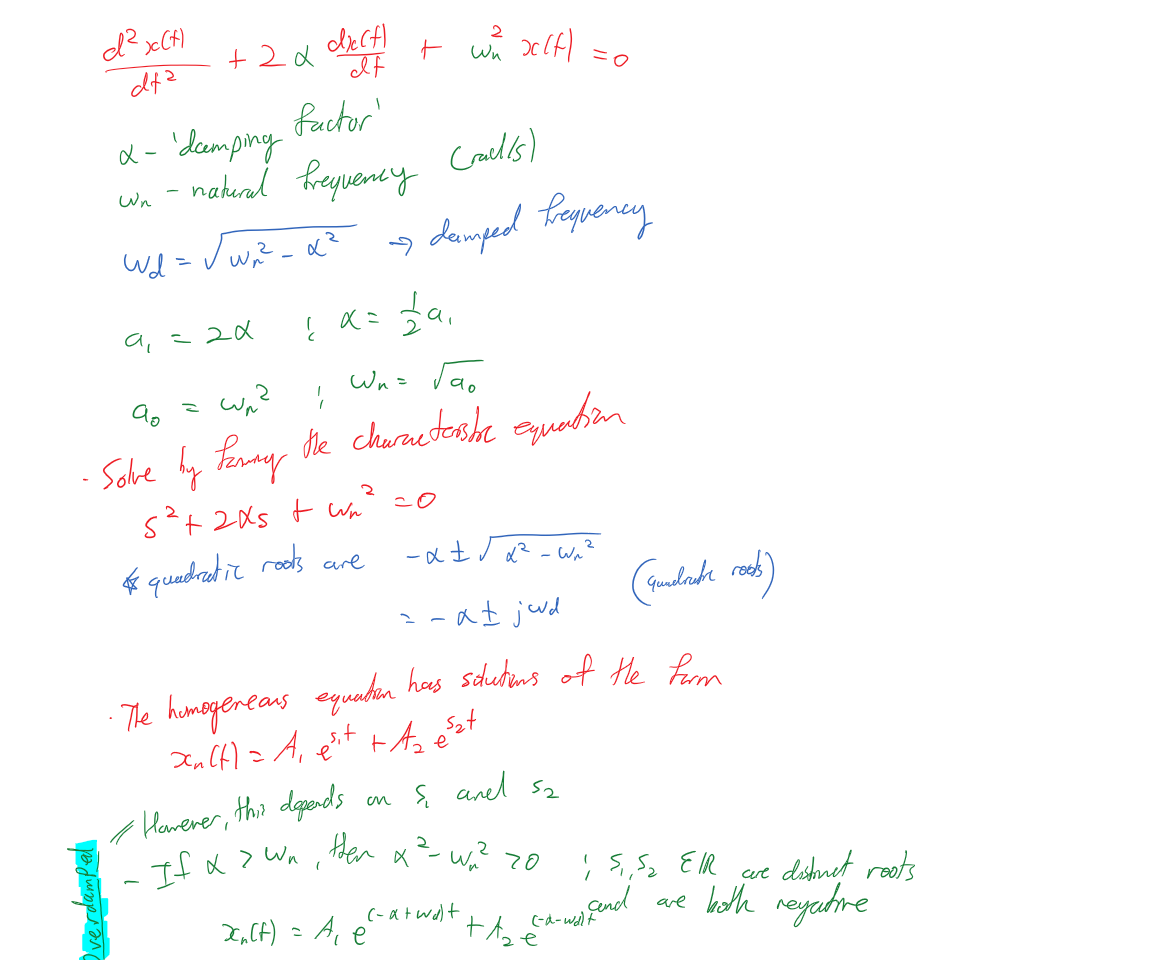 d²x(t)/dt² + 2α dx(t)/dt + ωn² x(t) = 0
α - 'damping factor'
ωn - natural frequency (rad/s)
ωd = √(ωn² - α²) → damped frequency
a₁ = 2α ; α = ½a₁
a₀ = ωn² ; ωn = √a₀
· Solve by forming the characteristic equation
s² + 2αs + ωn² = 0
* quadratic roots are -α ± √(α² - ωn²) (quadratic roots)
= -α ± jωd
· The homogeneous equation has solutions of the form
xn(t) = A₁ e^(s₁t) + A₂ e^(s₂t)
// However, this depends on s₁ and s₂
Overdamped
- If α > ωn, then α² - ωn² > 0 ; s₁, s₂ ∈ ℝ are distinct roots
and are both negative
xn(t) = A₁ e^((-α+ωd)t) + A₂ e^((-α-ωd)t)